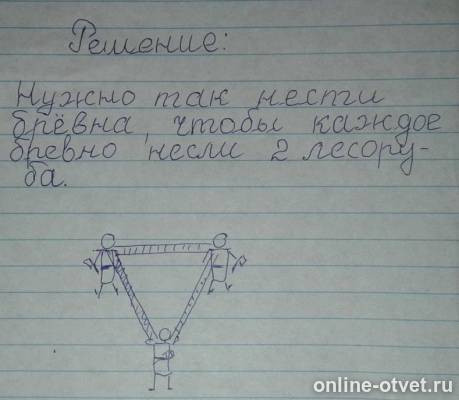 Решение:
Нужно так нести
брёвна, чтобы каждое
бревно несли 2 лесору-
ба.
online-otvet.ru